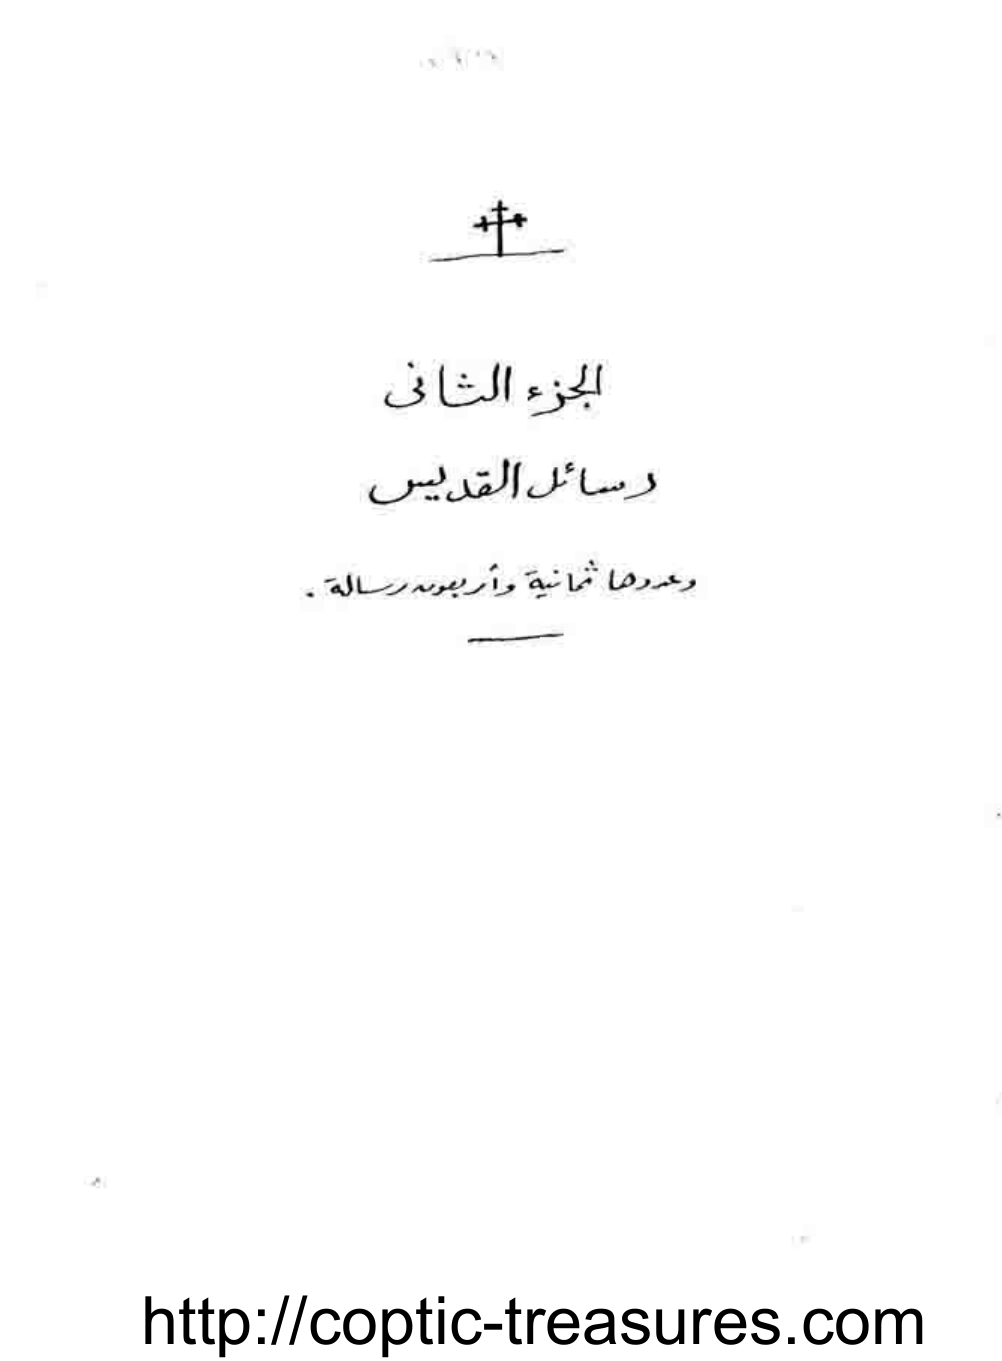 الجزء الثانى
رسائل القديس
وعددها ثمانية وأربعون رسالة .
http://coptic-treasures.com